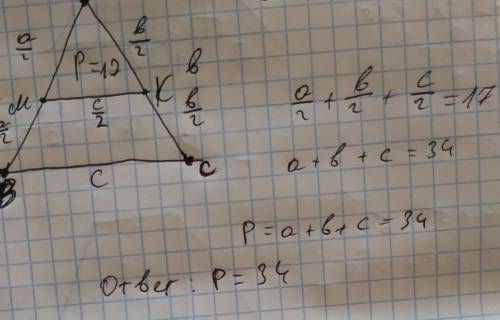 a/2
в/2
P=17
в
M
K
a/2
c/2
в/2
B
C
c
a/2 + в/2 + c/2 = 17
a + в + c = 34
P = a + в + c = 34
Ответ: P = 34